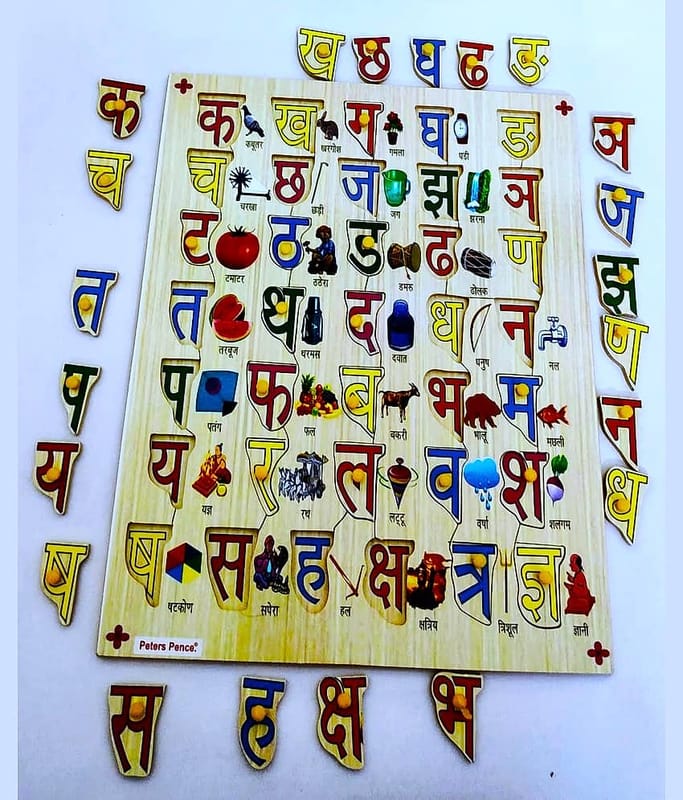 ख छ घ ढ ङ
क
च
त
प
य
ष
क ख ग घ ङ
कबूतर खरगोश गमला घड़ी
च छ ज झ ञ
चरखा छड़ी जग झरना
ट ठ ड ढ ण
टमाटर ठठेरा डमरु ढोलक
त थ द ध न
तरबूज थरमस दवात धनुष नल
प फ ब भ म
पतंग फल बकरी भालू मछली
य र ल व श
यज्ञ रथ लट्टू वर्षा शलगम
ष स ह क्ष त्र ज्ञ
षटकोण सपेरा हल क्षत्रिय त्रिशूल ज्ञानी
Peters Pence®
ञ
ज
झ
ण
न
ध
स ह क्ष भ